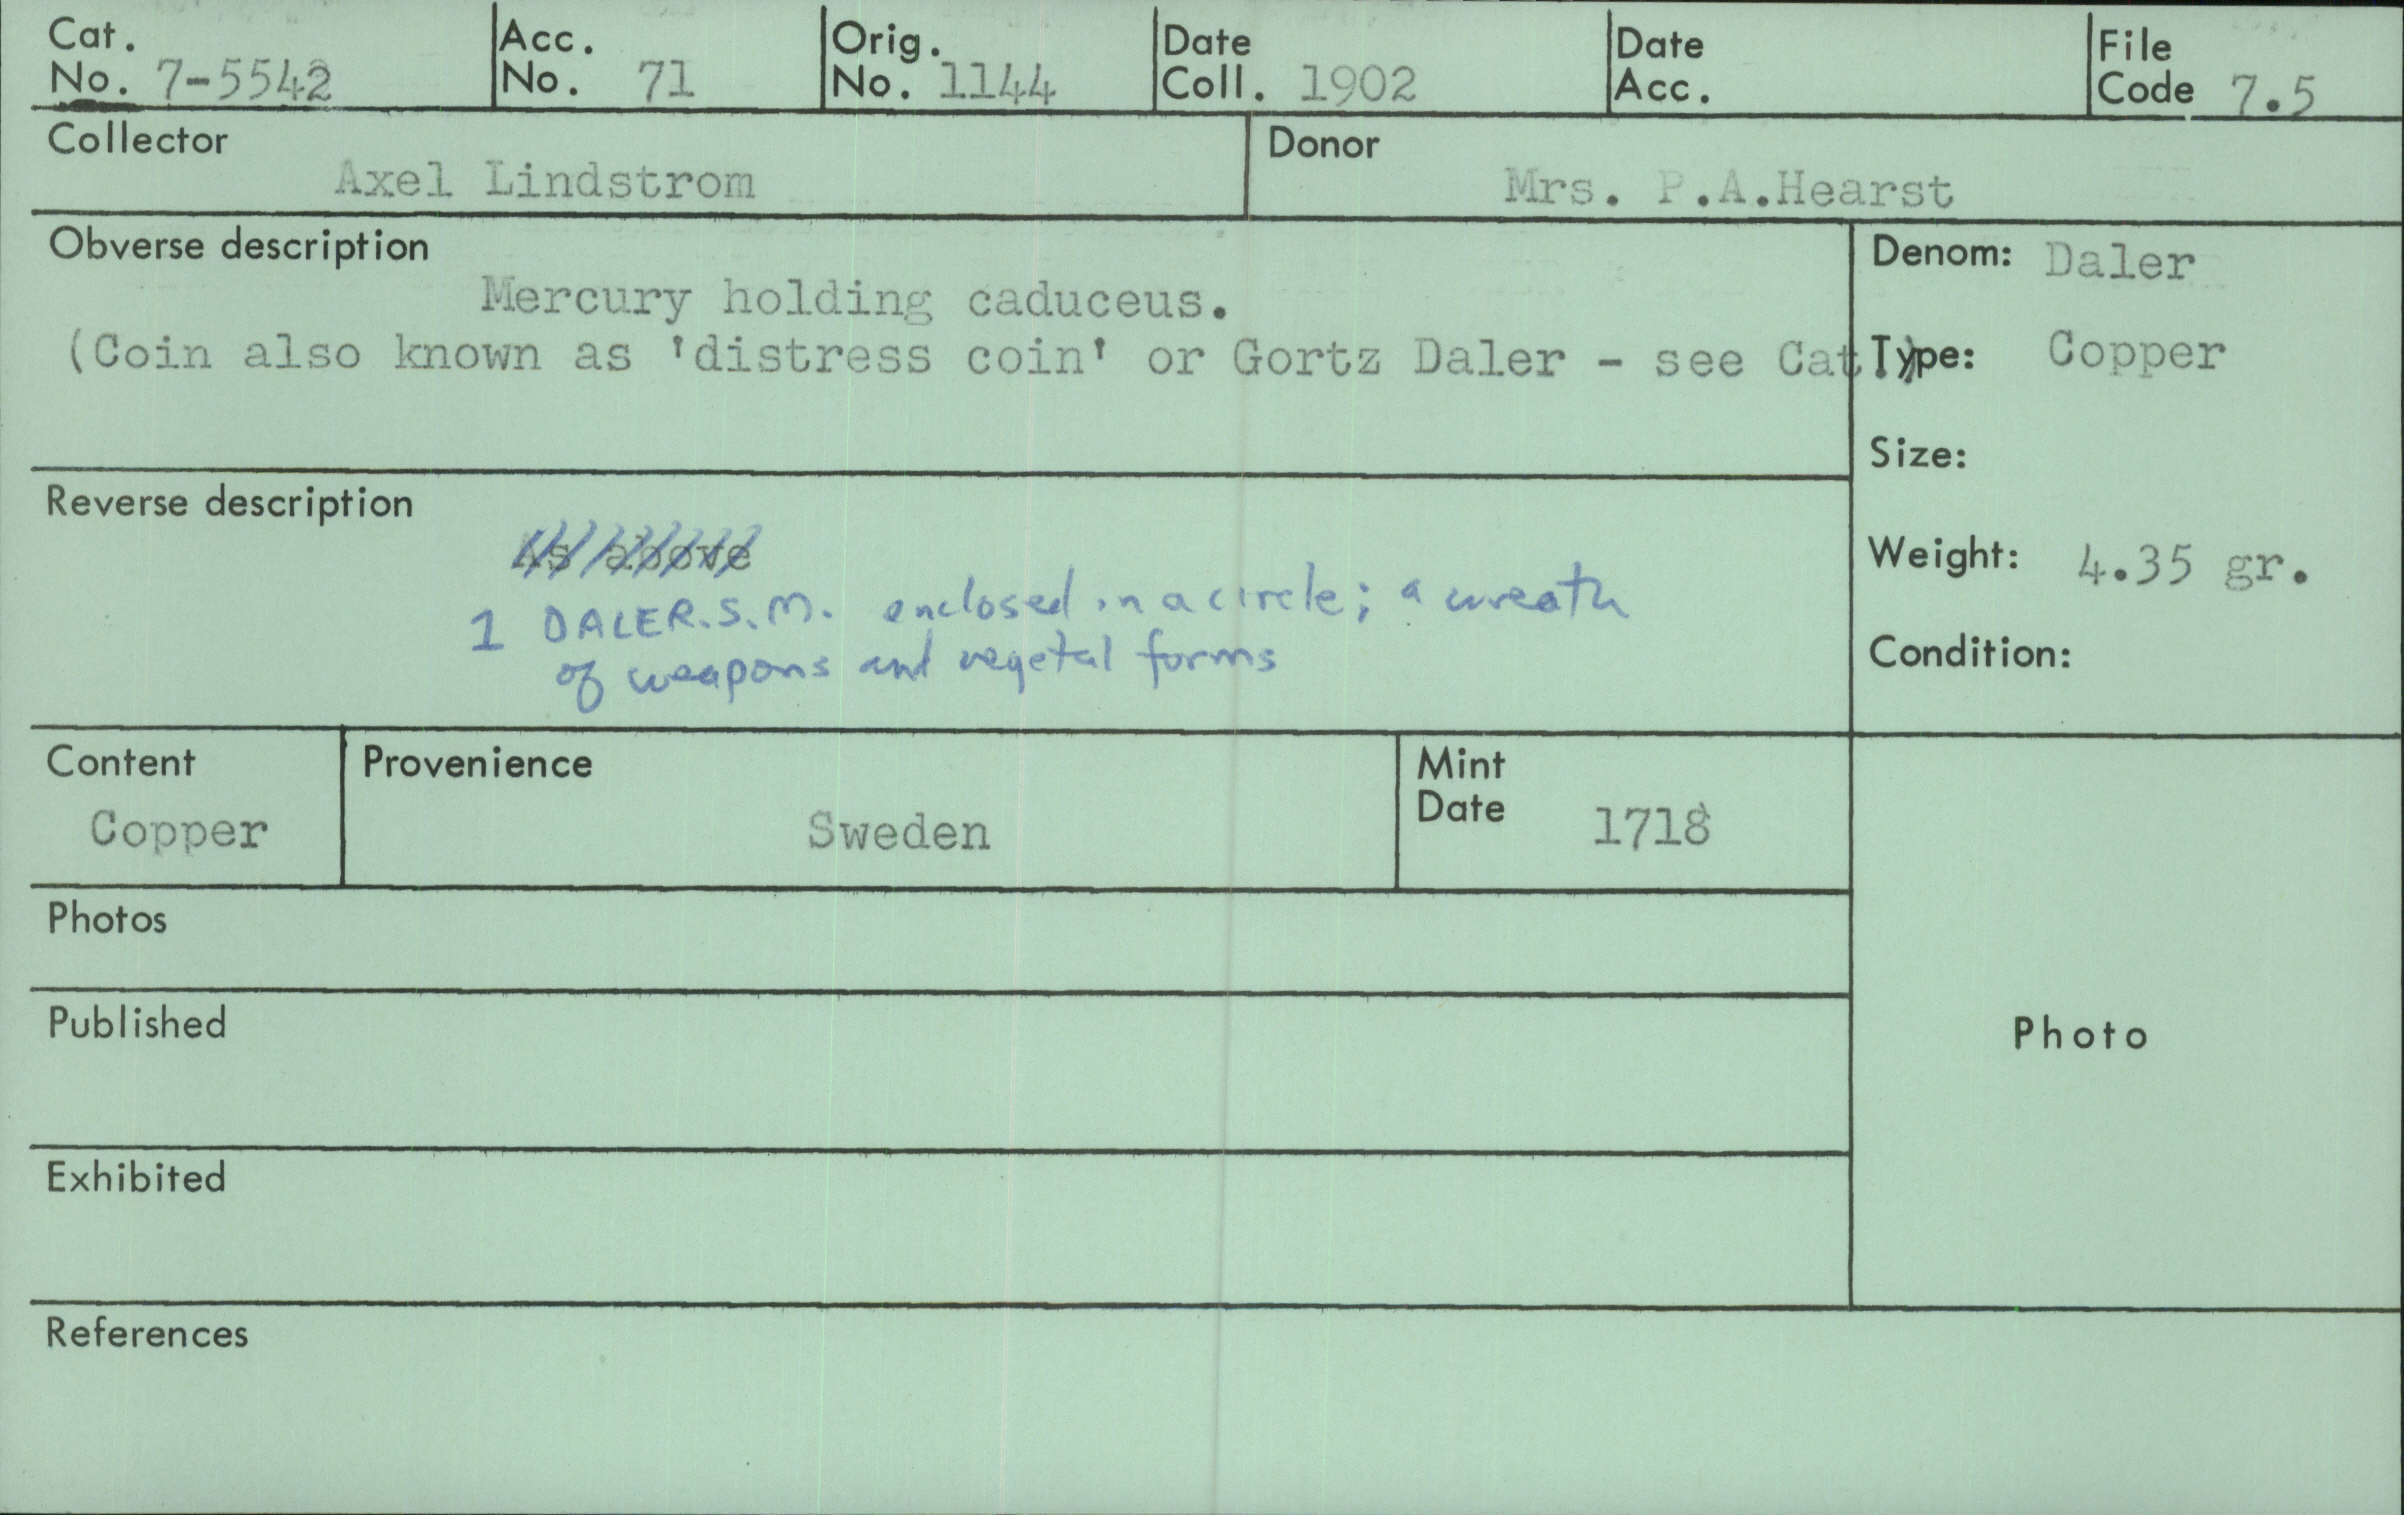 Cat. No. 7-5542
Acc. No. 71
Orig. No. 1144
Date Coll. 1902
Date Acc.
File Code 7.5
Collector
Axel Lindstrom
Donor
Mrs. P.A.Hearst
Obverse description
Mercury holding caduceus.
(Coin also known as 'distress coin' or Gortz Daler - see Cat.)
Denom: Daler
Type: Copper
Size:
Weight: 4.35 gr.
Condition:
Reverse description
As above
1 DALER.S.M. enclosed in a circle; a wreath
of weapons and vegetal forms
Content
Copper
Provenience
Sweden
Mint Date 1718
Photos
Published
Photo
Exhibited
References